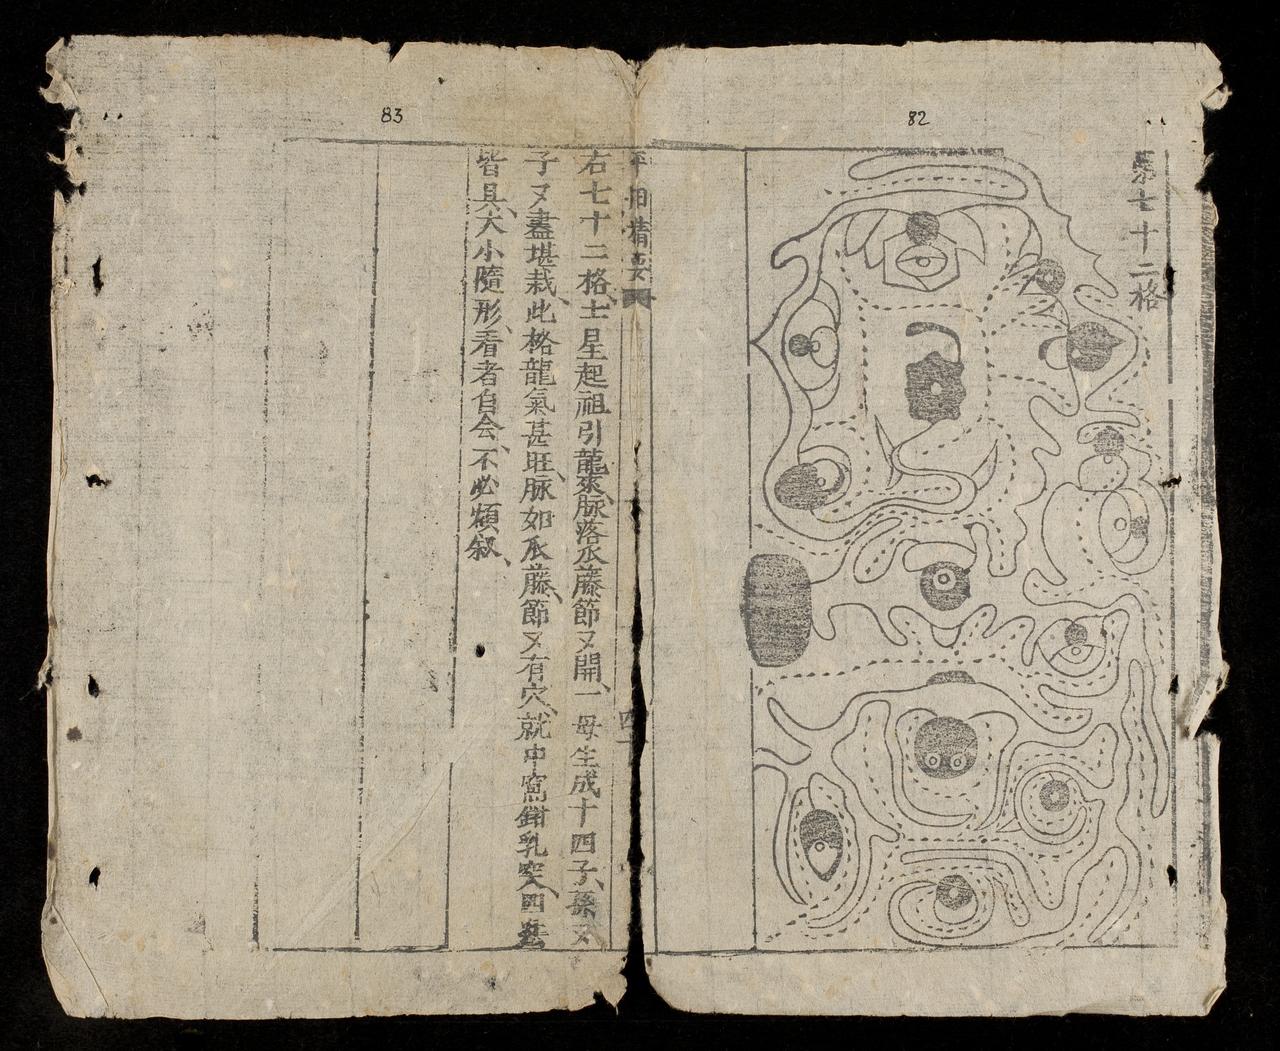 82
第七十二格
平陽精要
四一
83
右七十二格、土星起祖引龍來脉落瓜藤節又開、一母生成十四子、孫又
子又盡堪栽、此格龍氣甚旺、脉如瓜藤、節又有穴、就中窩鉗乳突、四法
皆具、大小隨形、看者自会、不必煩叙、